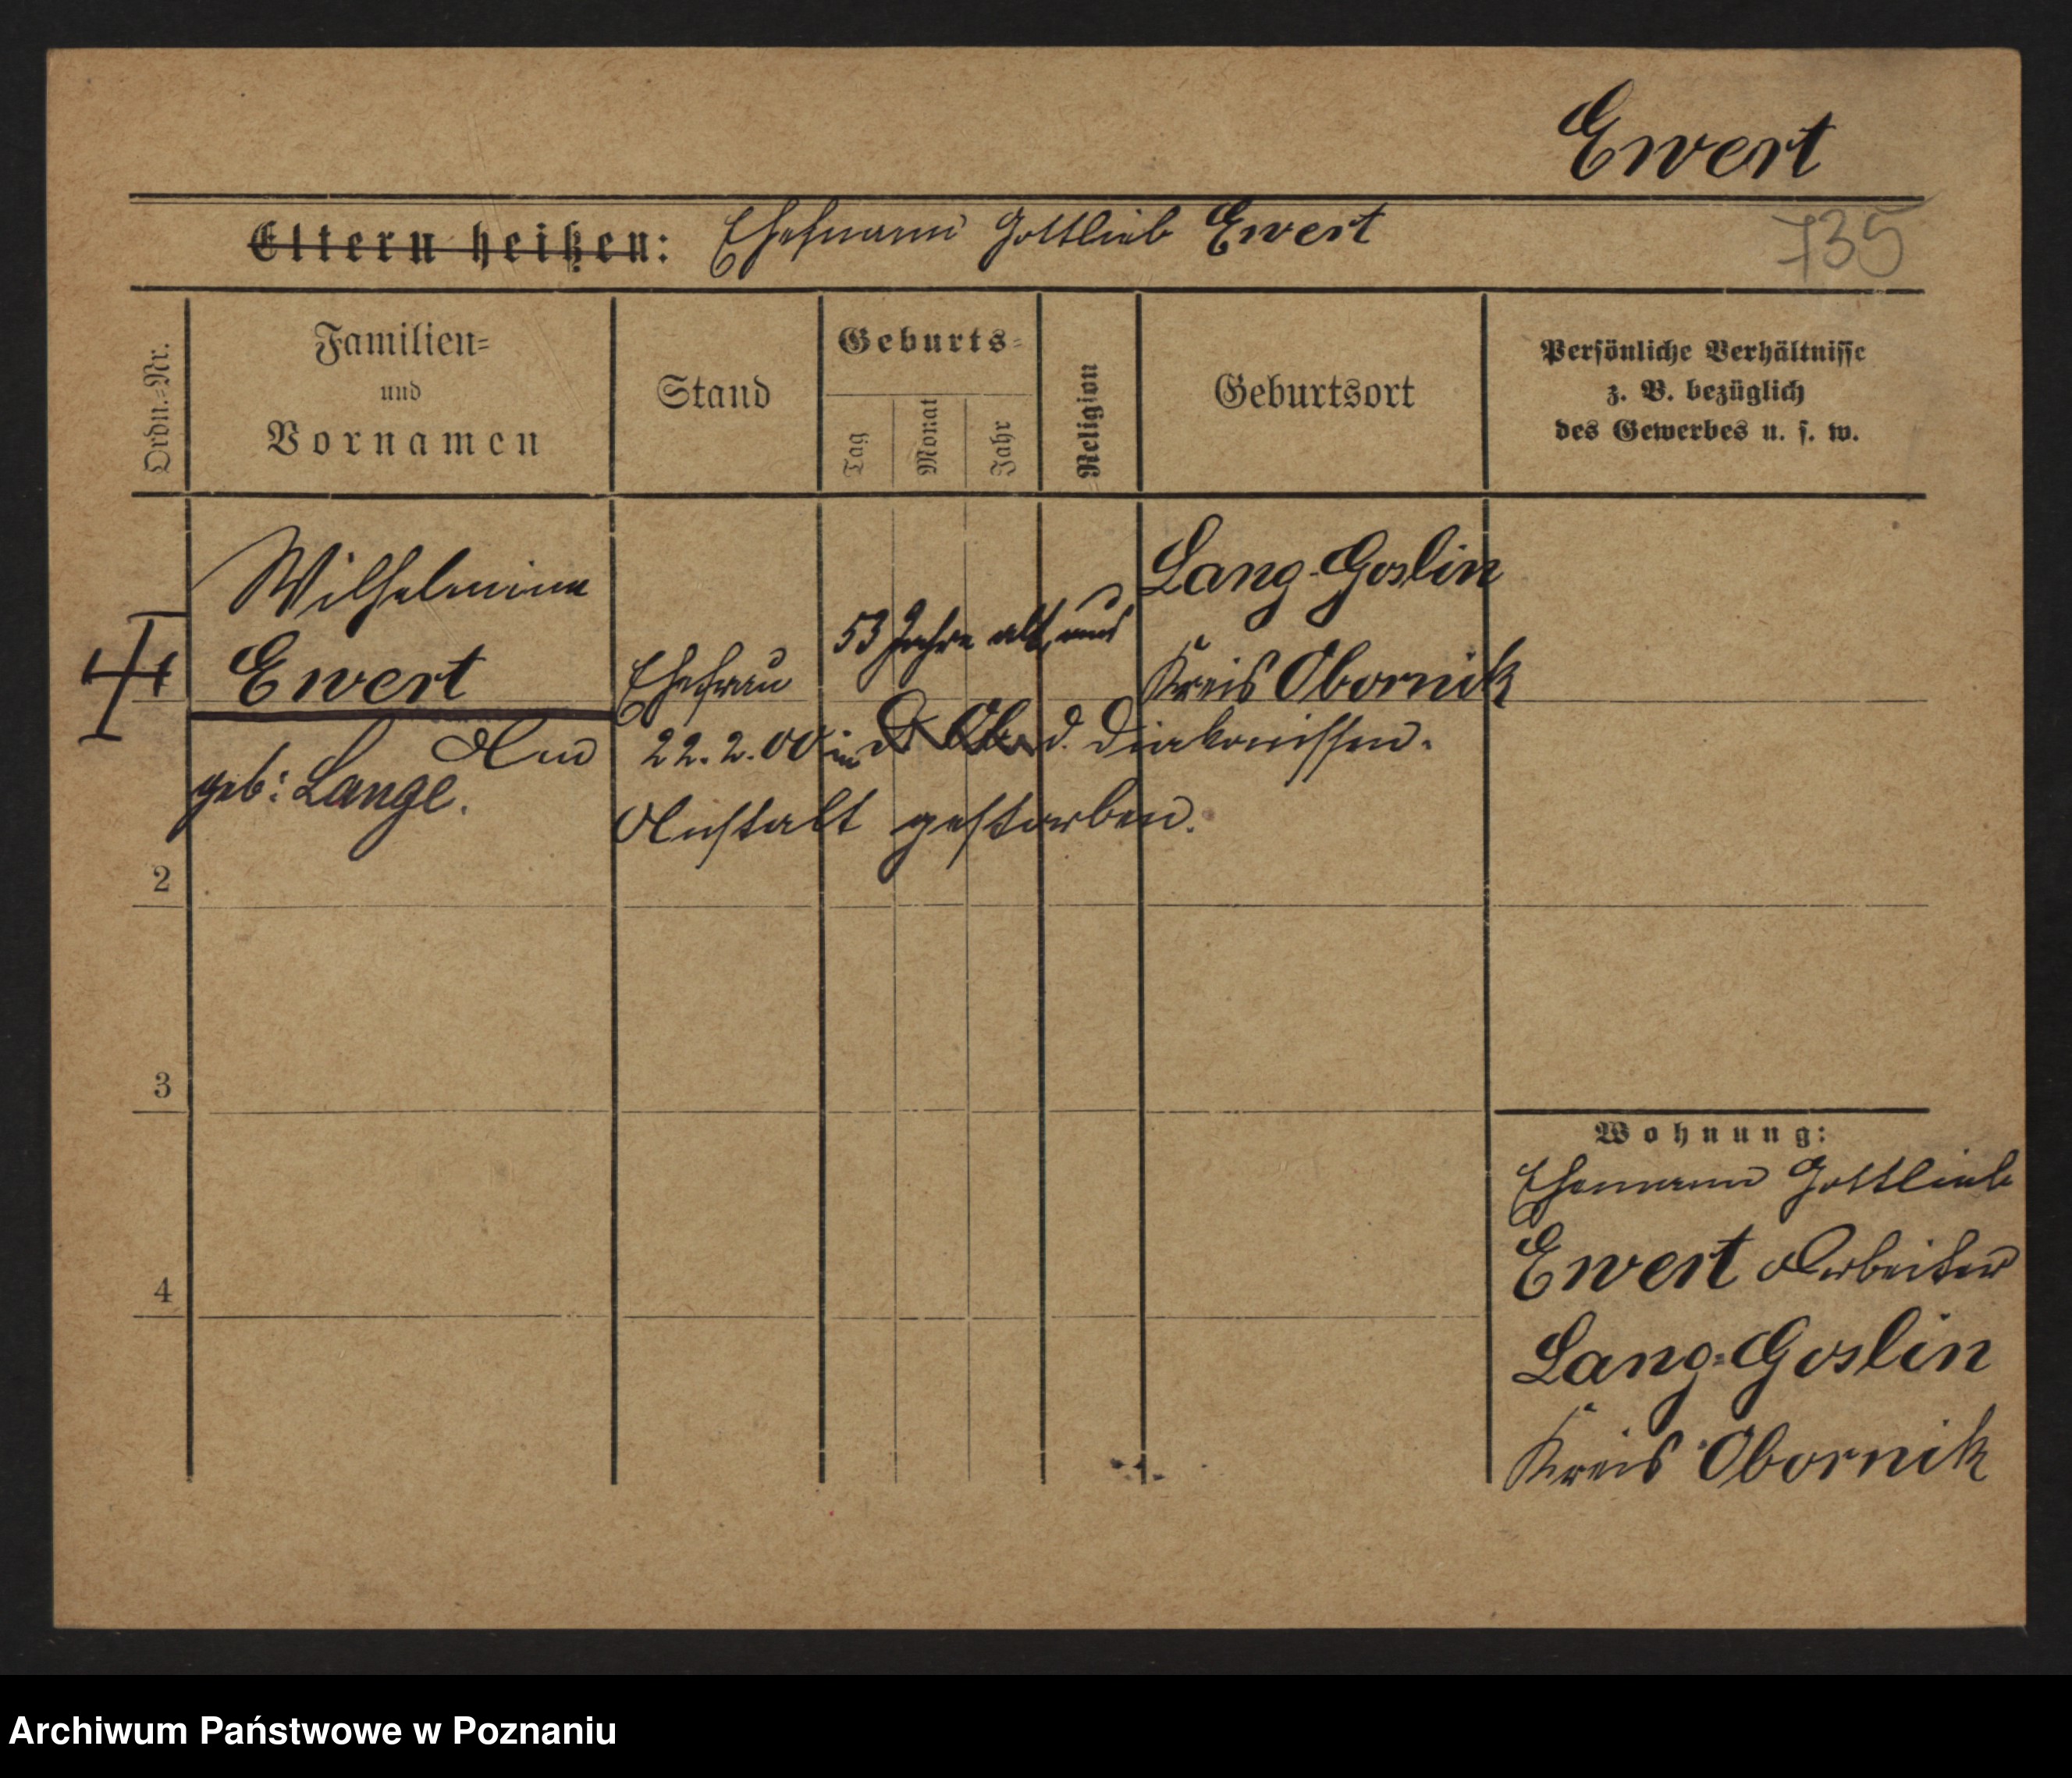 Ewert
Eltern heißen: Ehefmann Gottlieb Ewert
735
Ordn.=Nr.
Familien=
und
Vornamen
Stand
Geburts=
Tag
Monat
Jahr
Religion
Geburtsort
Persönliche Verhältnisse
z. B. bezüglich
des Gewerbes u. s. w.
Wilhelmine
Ewert
geb: Lange.
Ehefrau
53 Jahre alt, aus
Lang-Goslin
Kreis Obornik
Am 22.2.00 in d. Diakonissen-
Anstalt gestorben.
2
3
4
Wohnung:
Ehemann Gottlieb
Ewert Arbeiter
Lang=Goslin
Kreis Obornik
Archiwum Państwowe w Poznaniu